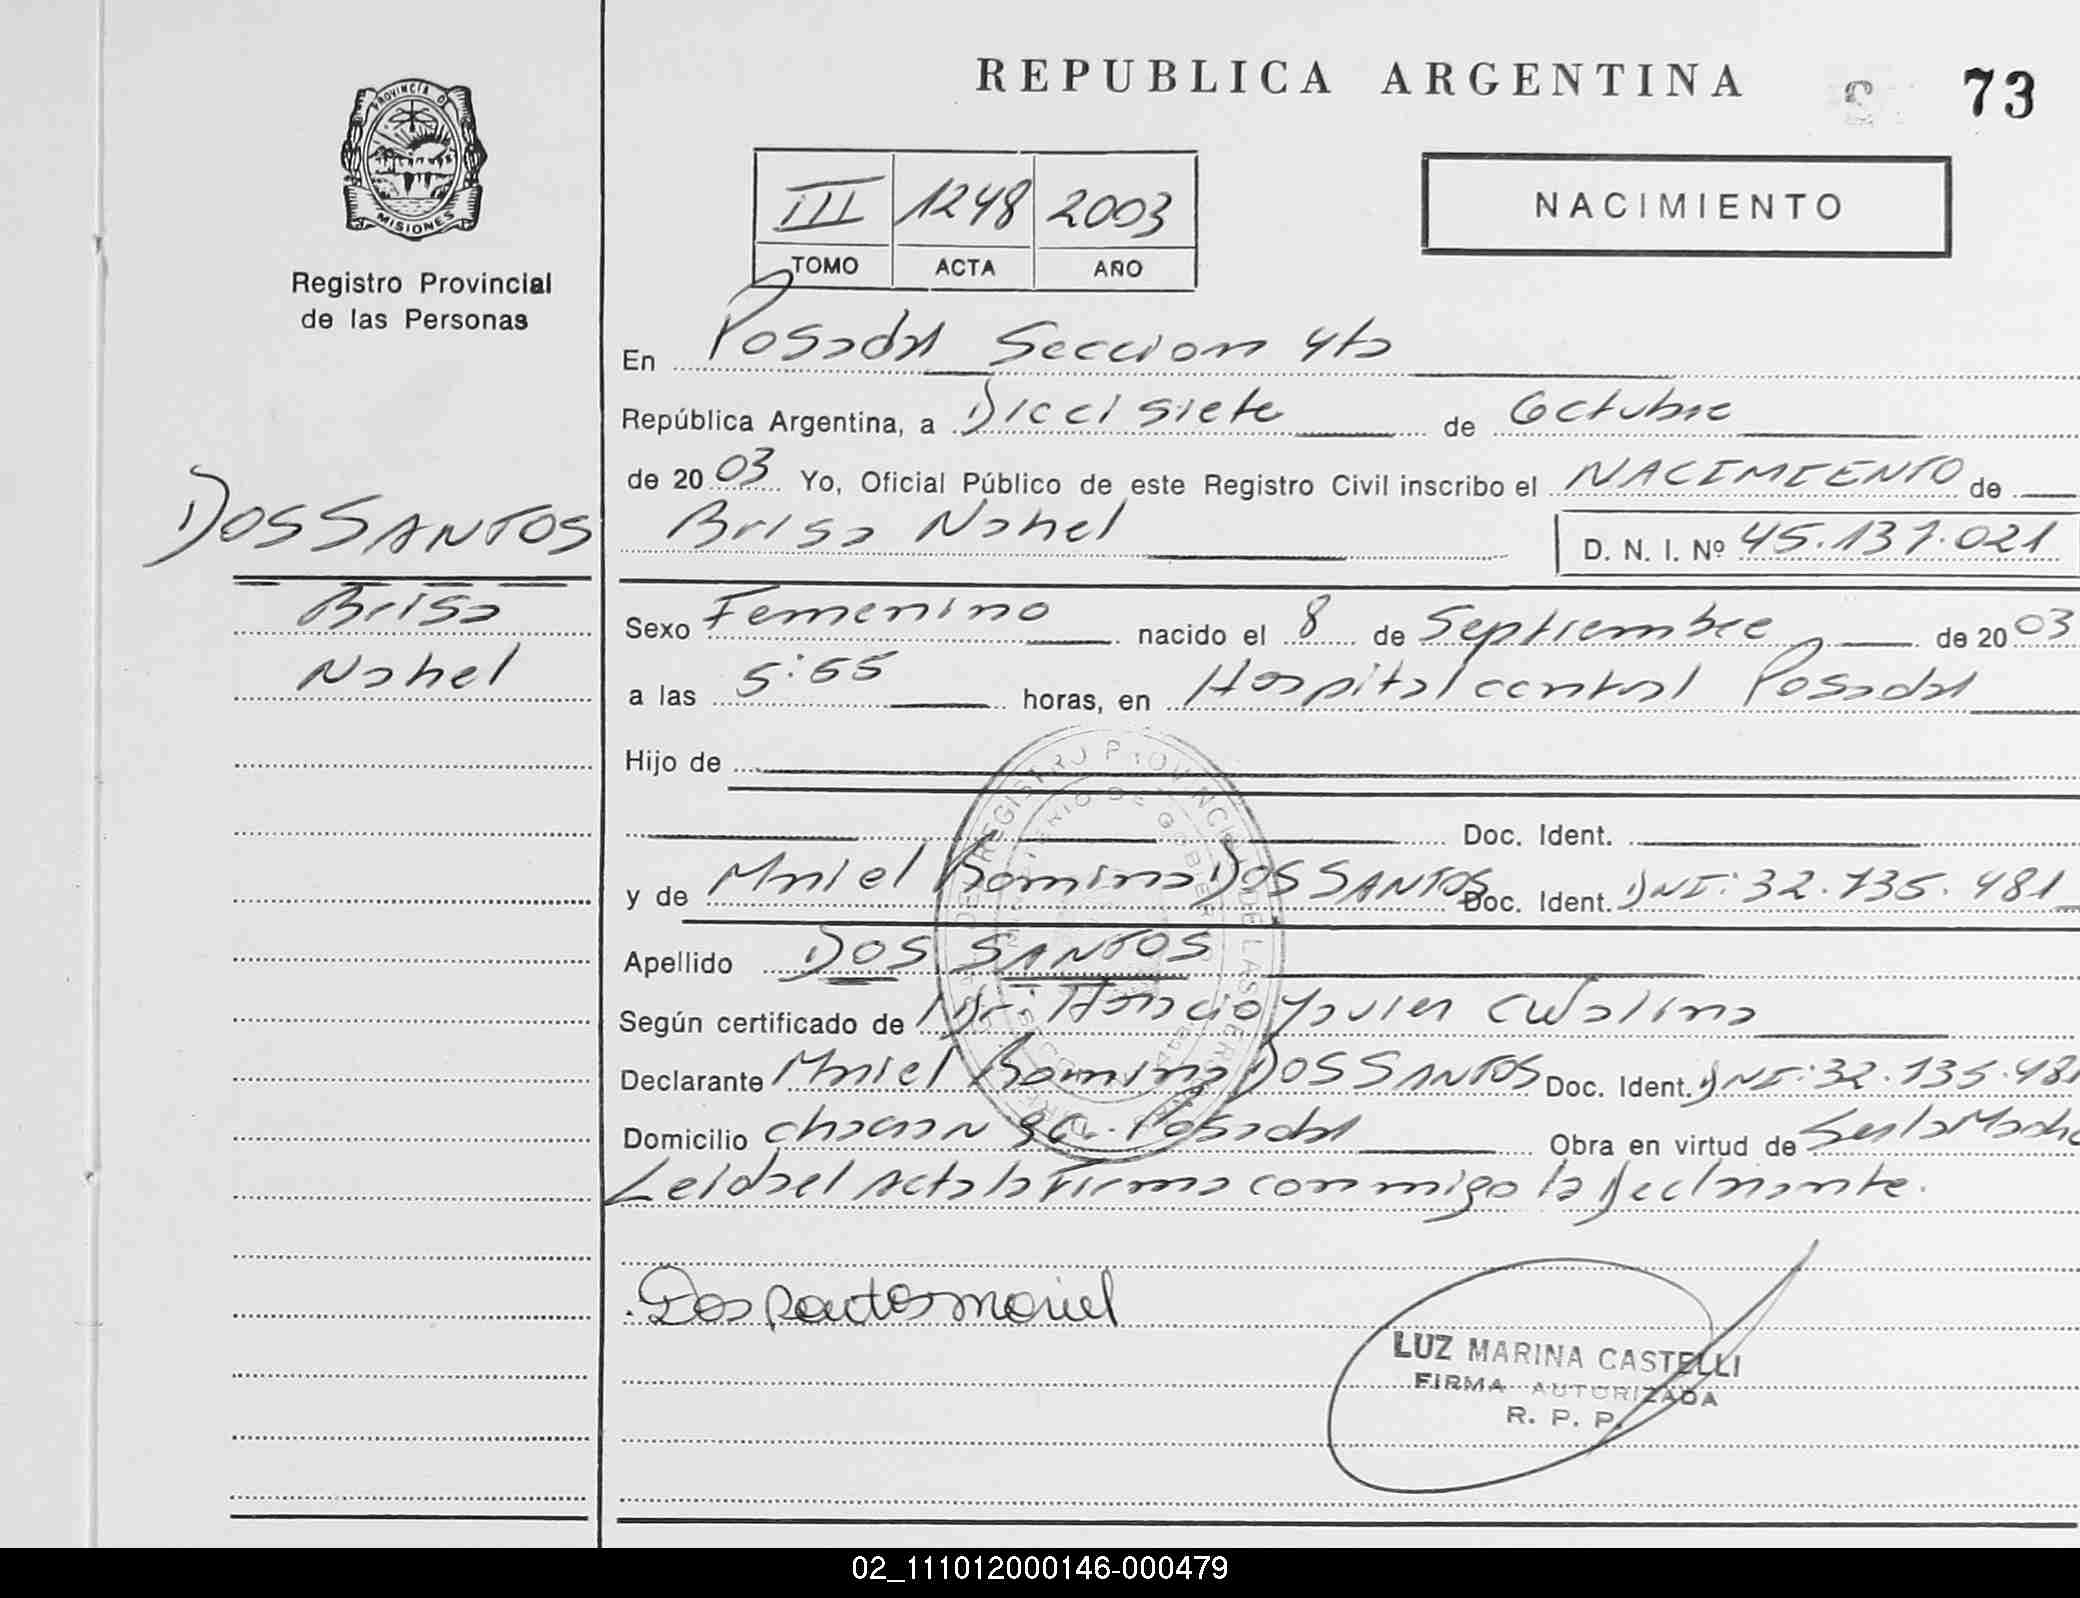 REPUBLICA ARGENTINA
73
PROVINCIA DE
MISIONES
Registro Provincial
de las Personas
III 1248 2003
TOMO ACTA AÑO
NACIMIENTO
En Posadas Seccion 4ta
República Argentina, a Diecisiete de Octubre
de 2003 Yo, Oficial Público de este Registro Civil inscribo el NACIMIENTO de
Brisa Nahel D. N. I. Nº 45.137.021
DOS SANTOS
Brisa
Nahel
Sexo Femenino nacido el 8 de Septiembre de 2003
a las 5:55 horas, en Hospital central Posadas
Hijo de
Doc. Ident.
y de Mariel Romina DOS SANTOS Doc. Ident. DNI: 32.735.481
Apellido DOS SANTOS
Según certificado de Dr. Horacio Javier
Declarante Mariel Romina DOS SANTOS Doc. Ident. DNI: 32.735.481
Domicilio Posadas Obra en virtud de Ser la Madre
Leida el Acta la Firma conmigo la Declarante.
Dos santos mariel
LUZ MARINA CASTELLI
FIRMA AUTORIZADA
R. P. P.
02_111012000146-000479